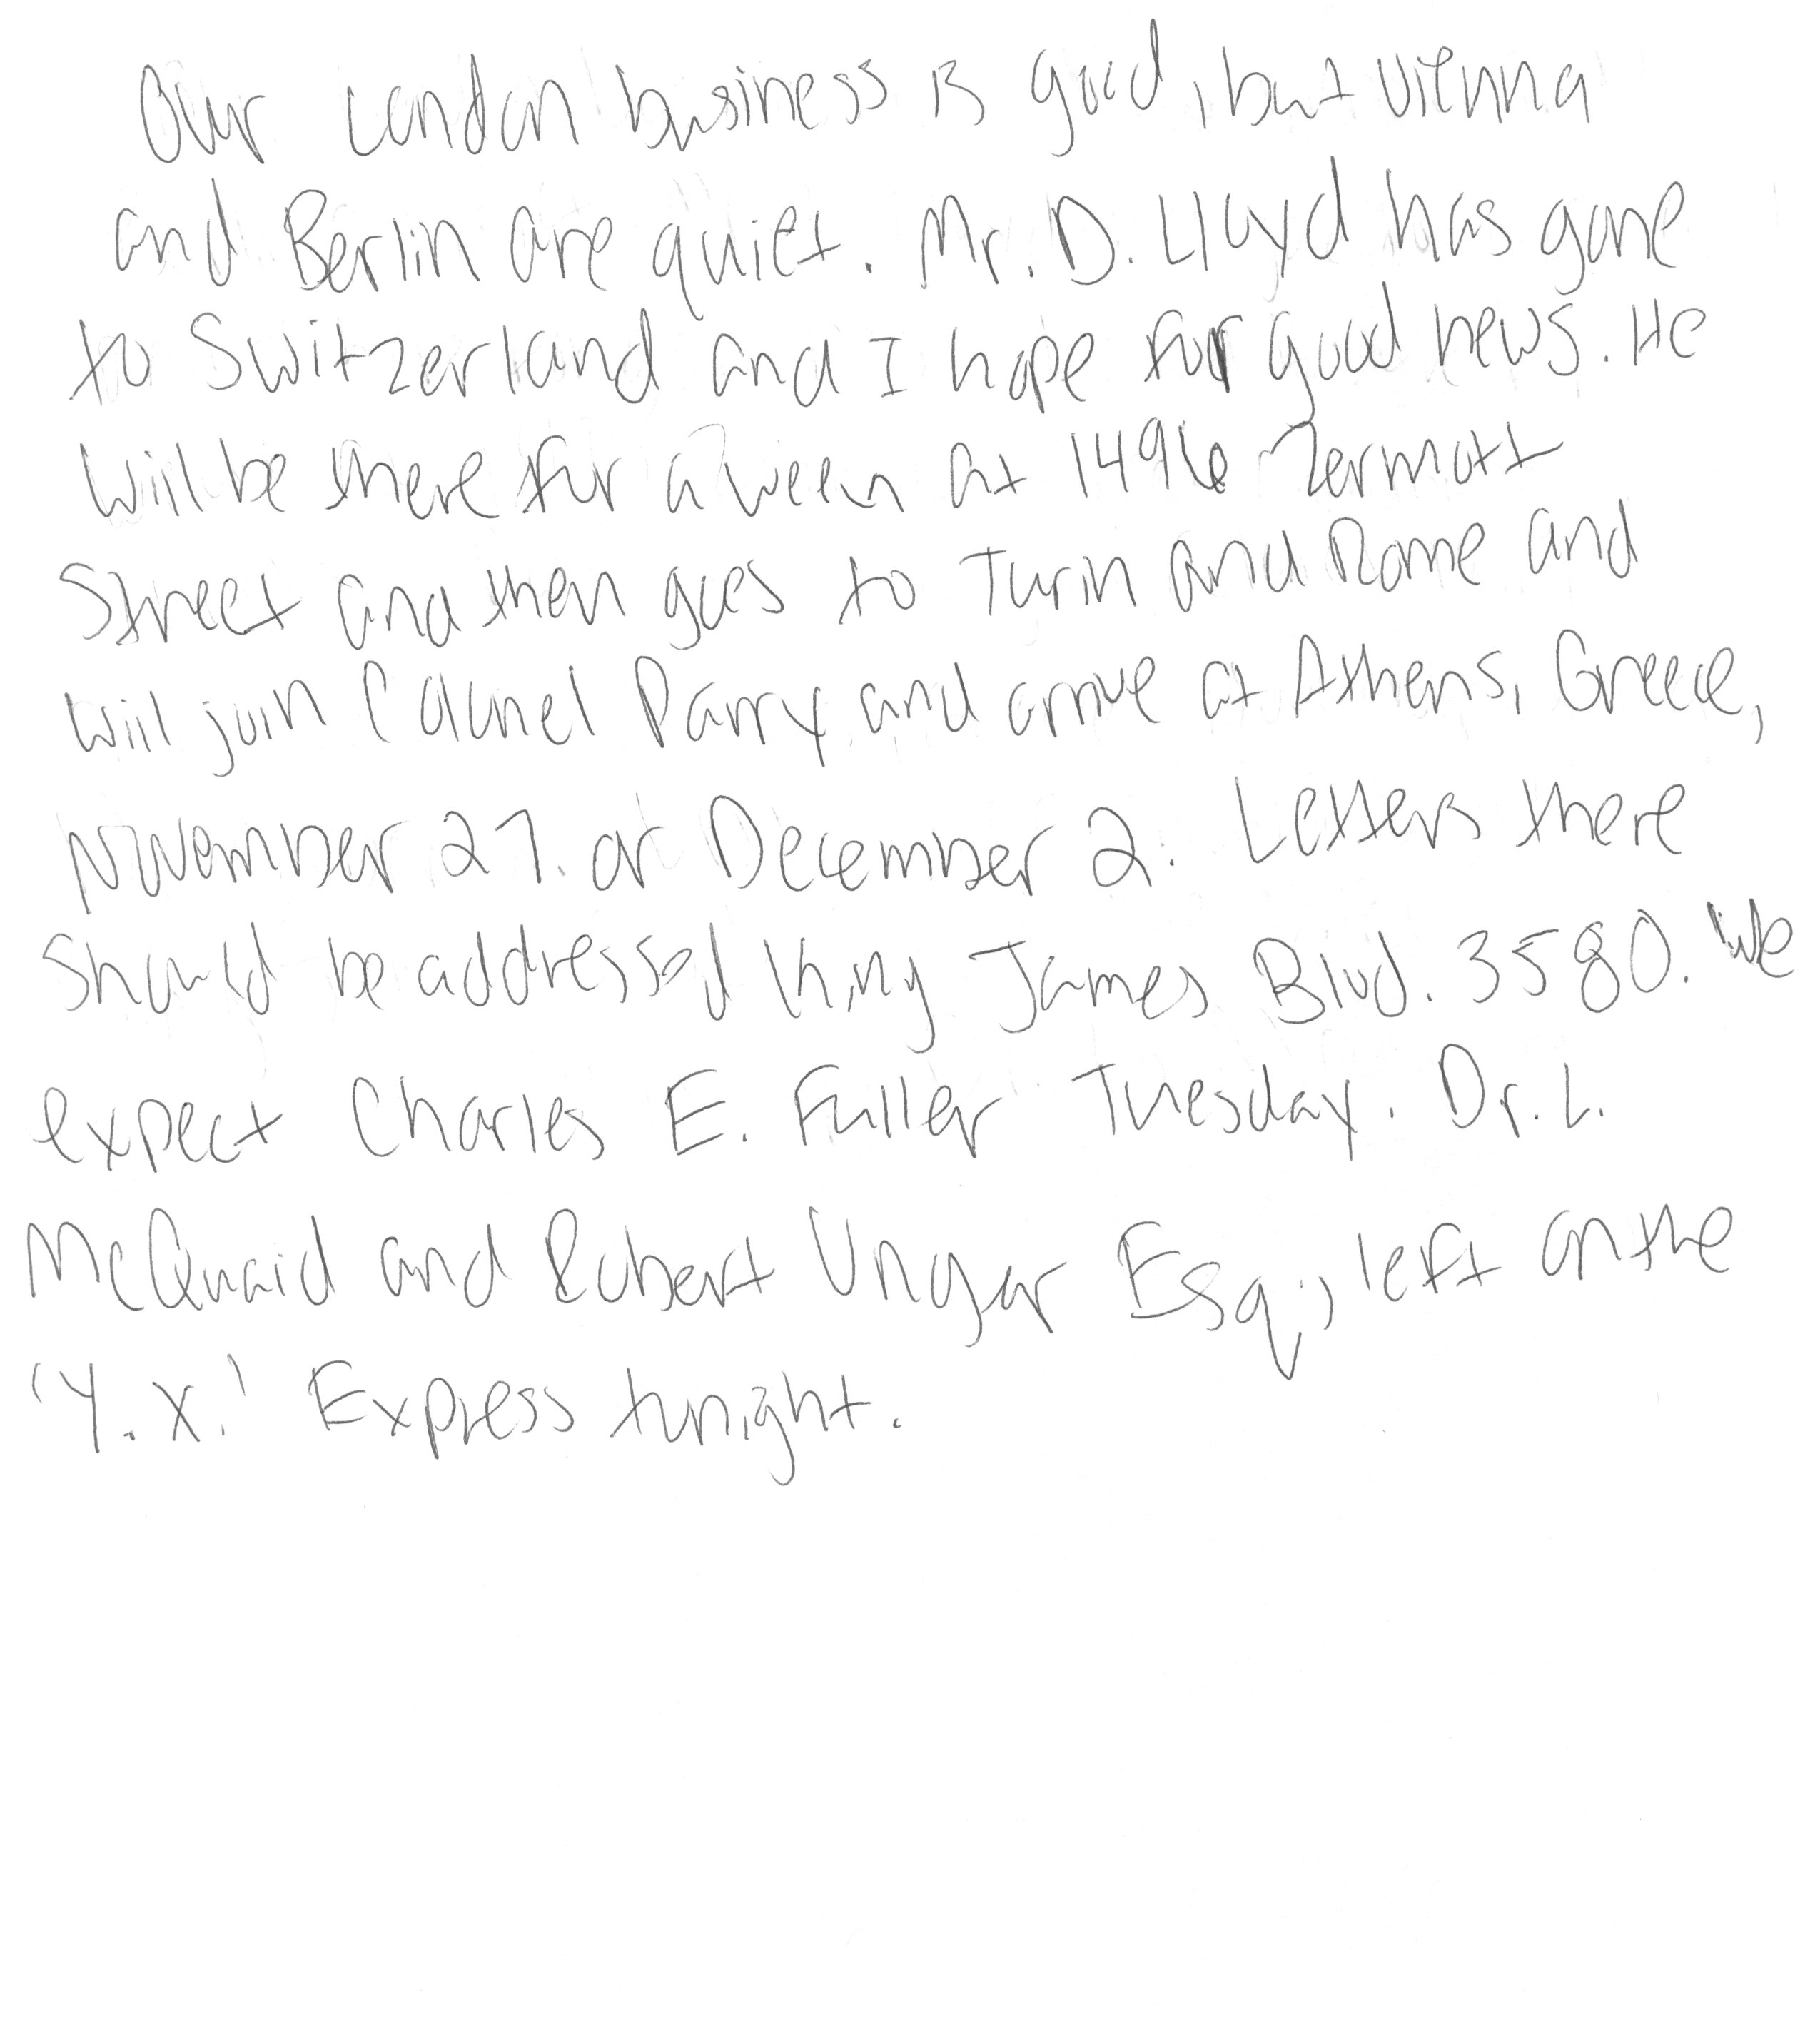 Our London business is good, but Vienna
and Berlin are quiet. Mr. D. Lloyd has gone
to Switzerland and I hope for good news. He
will be there for a week at 1496 Zermott
Street and then goes to Turin and Rome and
will join Colonel Parry and arrive at Athens, Greece,
November 27. or December 2. Letters there
should be addressed King James Blvd. 3580. We
expect Charles E. Fuller Tuesday. Dr. L.
McQuaid and Robert Unger Esq., left on the
'Y.X.' Express tonight.